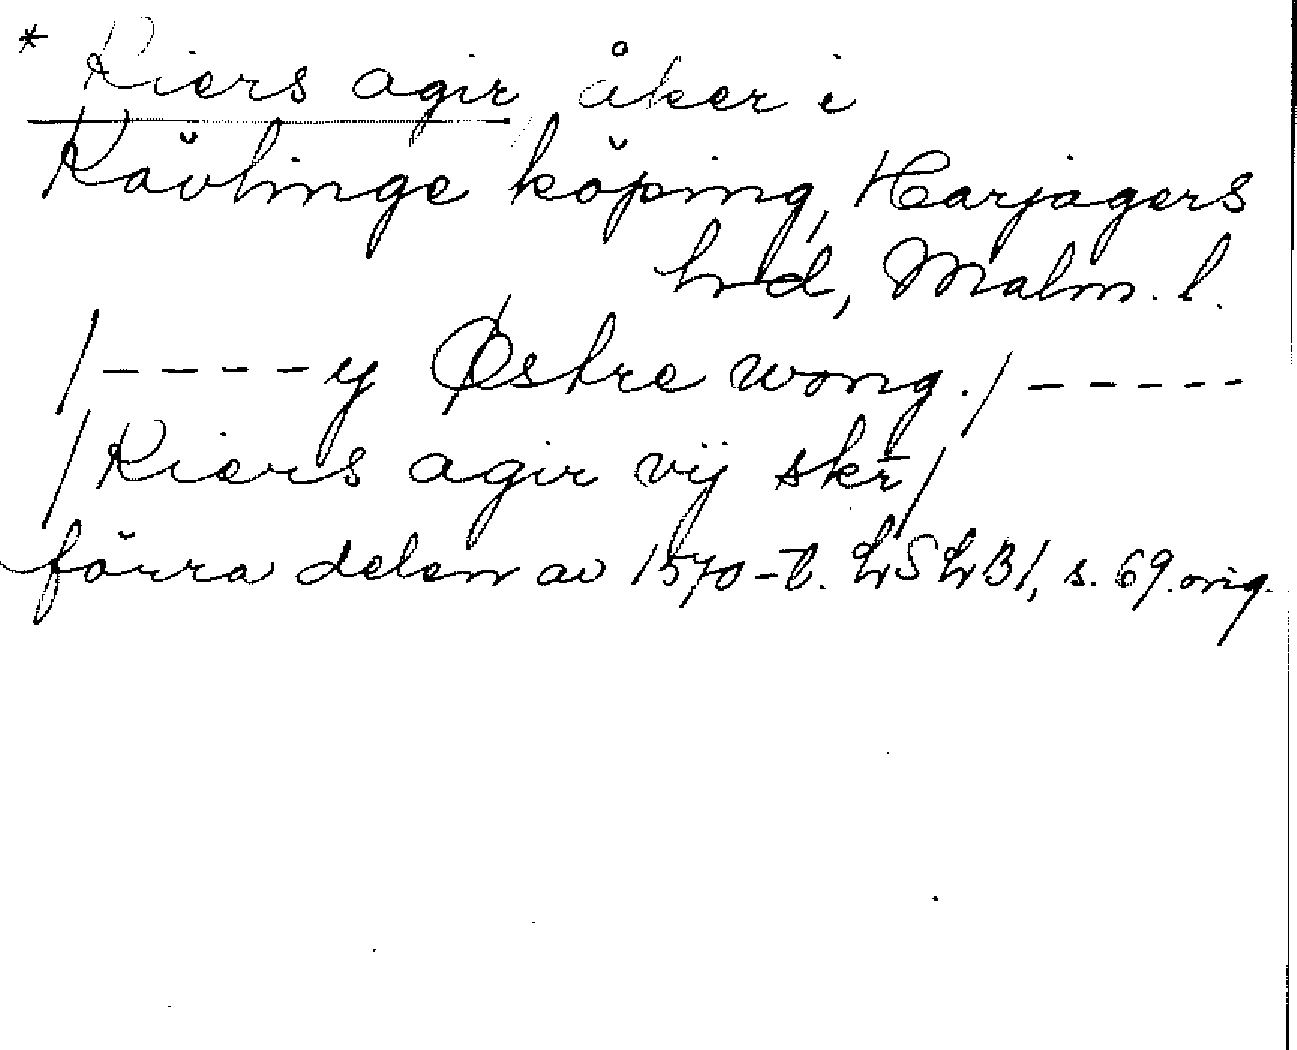 * Kiers agir, åker i
Kävlinge köping, Harjagers
hrd, Malm. l.
/ - - - - - y Østre wong. / - - - - -
/ Kiers agir vij skr̄ /
förra delen av 1570-t. LSLB1, s. 69. orig.